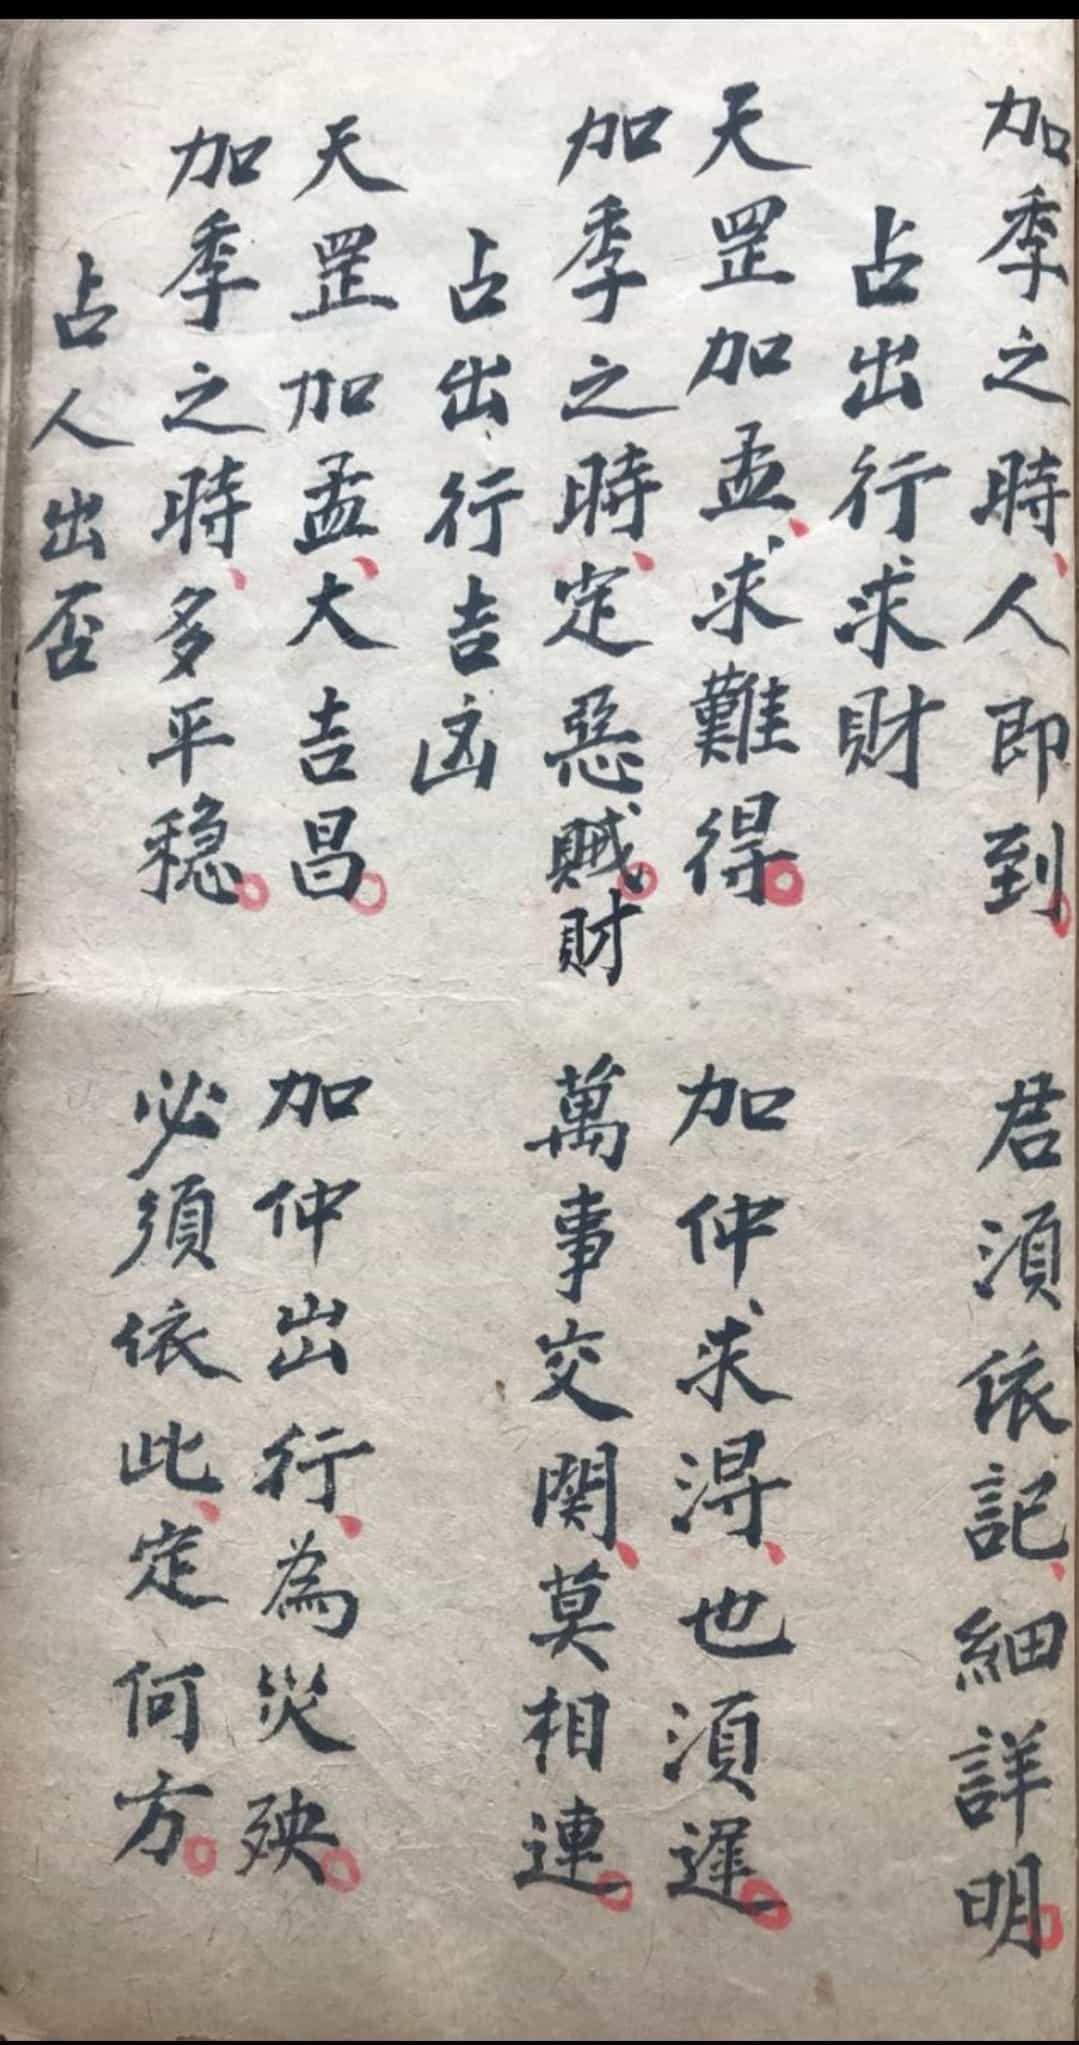 加季之時、人即到。君須依記、細詳明。
占出行求財
天罡加孟、求難得。加仲求得、也須遲。
加季之時、定惡賊。財萬事交関、莫相連。
占出行吉凶
天罡加孟、大吉昌。加仲出行、為災殃。
加季之時、多平穏。必須依此、定何方。
占人出否